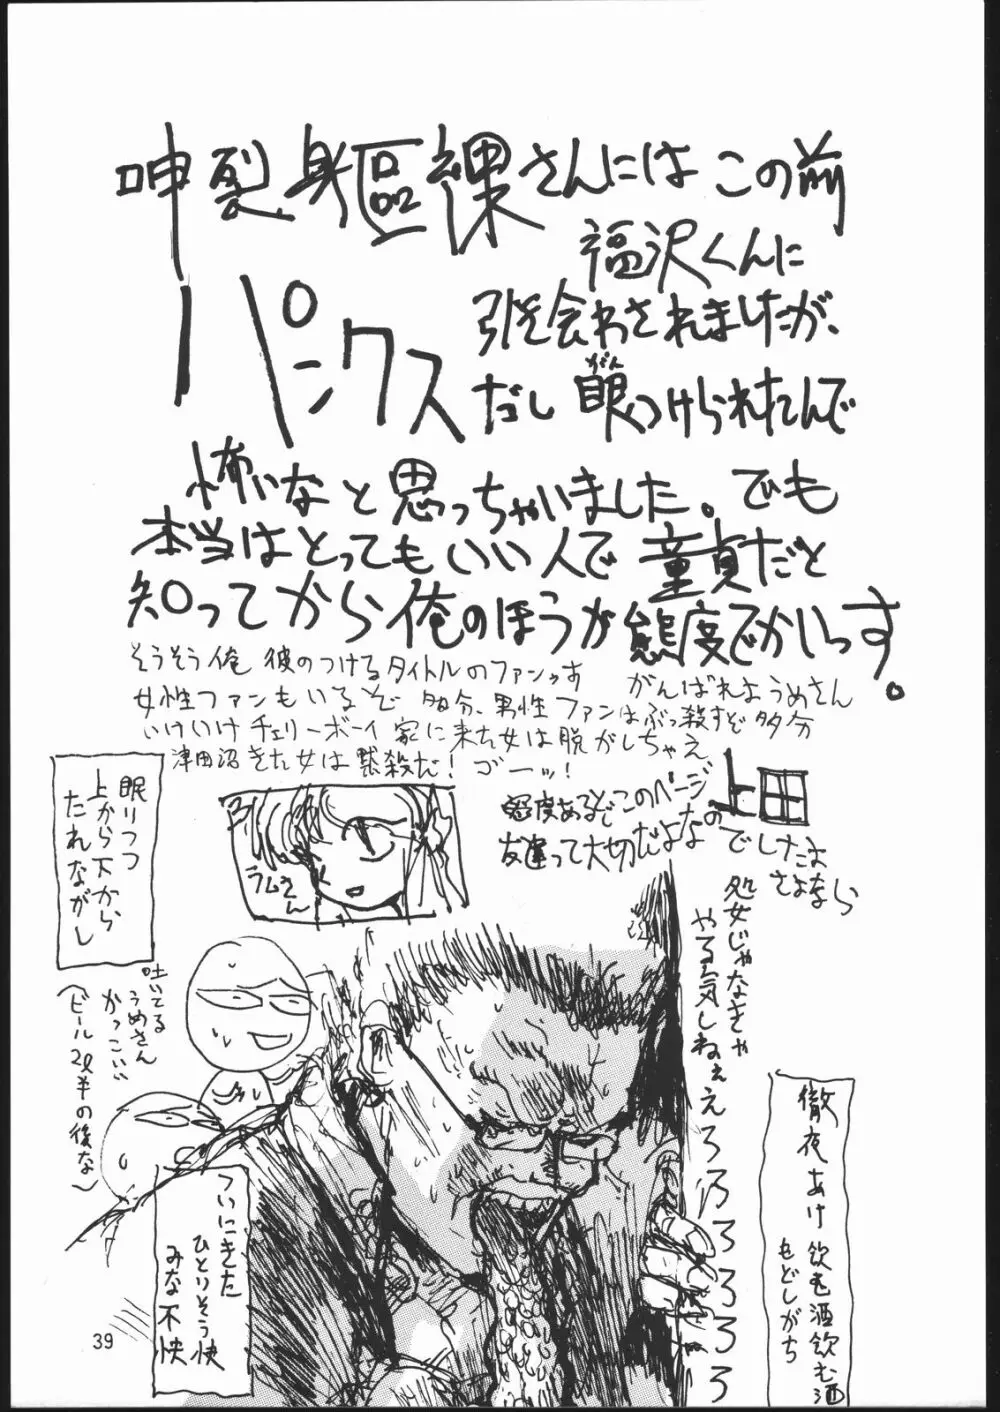 呻裂身區裸さんにはこの前
福沢くんに
パンクス
引き会わされましたが、
だし眼つけられたんで
がん
怖いなと思っちゃいました。でも
本当はとってもいい人で童貞だと
知ってから俺のほうが態度でかいっす。
そうそう俺 彼のつけるタイトルのファンっす
女性ファンもいるぞ 多分、男性ファンはぶっ殺すぞ多分
がんばれようめさん
いけいけチェリーボーイ 家に来た女は脱がしちゃえ、
津田沼きた女は黙殺だ! ゴーッ!
上田
態度あるぞこのページ
友達って大切だよなの
でしたよ
さよなら
眠りつつ
上から下から
たれながし
ラムさん
吐いてる
うめさん
かっこいい
(ビール2ℓ半の後な)
処女じゃなきゃ
やる気しねぇえろろろろろろ
徹夜あけ飲む酒飲む酒
もどしがち
ついにきた
ひとりそう快
みな不快
39